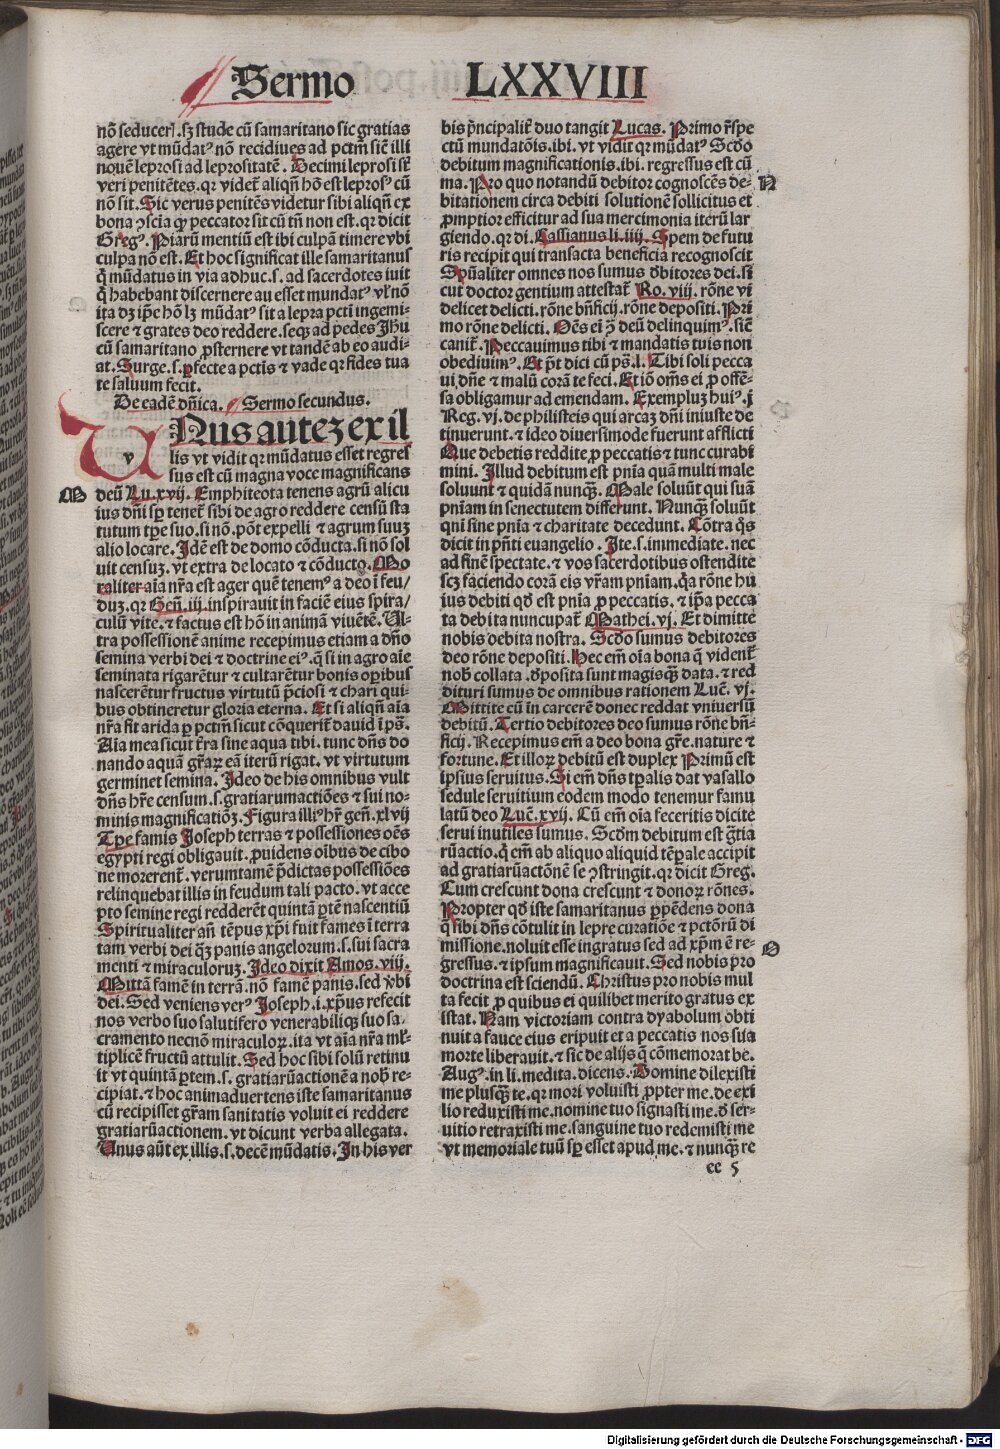 Sermo LXXVIII
nõ seducer̃. sʒ stude cũ samaritano sic gratias
agere vt mũdatꝰ nõ recidiues ad pctm̃ sic̃ illi
nouẽ leprosi ad leprositatẽ. Decimi leprosi st̃
veri penitẽtes. qr videt̃ aliqñ hõ est leprosꝰ cũ
nõ sit. Sic verus penitẽs videtur sibi aliqñ ex
bona ꝯscia ꝙ peccator sit cũ tñ non est. qr dicit
Gregꝰ. Piarũ mentiũ est ibi culpã timere vbi
culpa nõ est. Et hoc significat ille samaritanus
q̃ mũdatus in via adhuc .s. ad sacerdotes iuit
q̃ habebant discernere au esset mundatꝰ vl̃ nõ
ita dʒ ip̃e hõ lʒ mũdatꝰ sit a lepra pcti ingemi-
scere ⁊ grates deo reddere. seqʒ ad pedes Jhu
cũ samaritano ꝓsternere vt tandẽ ab eo audi-
at. Surge .s. ꝑfecte a pctis ⁊ vade qr fides tua
te saluum fecit.
De eadẽ dñica. Sermo secundus.
UNus auteʒ ex il
v
lis vt vidit qr mũdatus esset regres
sus est cũ magna voce magnificans
M
deũ Lu. xvij. Emphiteota tenens agrũ alicu
ius dñi sꝑ tenet̃ sibi de agro reddere censũ sta
tutum tꝑe suo. si nõ. põt expelli ⁊ agrum suuʒ
alio locare. Jdẽ est de domo cõducta. si nõ sol
uit censuʒ. vt extra de locato ⁊ cõducto. Mo
raliter aĩa nr̃a est ager quẽ tenemꝰ a deo ĩ feu/
duʒ. qr Geñ. iij. inspirauit in faciẽ eius spira/
culũ vite. ⁊ factus est hõ in animã viuẽtẽ. Ul-
tra possessionẽ anime recepimus etiam a dño
semina verbi dei ⁊ doctrine eiꝰ. q̃ si in agro aĩe
seminata rigarẽtur ⁊ cultarẽtur bonis oꝑibus
nascerẽtur fructus virtutũ p̃ciosi ⁊ chari qui-
bus obtineretur gloria eterna. Et si aliqñ aĩa
nr̃a fit arida ꝑ pctm̃ sicut cõquerit̃ dauid ĩ ps̃.
Aĩa mea sicut tr̃a sine aqua tibi. tunc dñs do
nando aquã gr̃aꝝ eã iterũ rigat. vt virtutum
germinet semina. Jdeo de his omnibus vult
dñs hr̃e censum .s. gratiarumactiões ⁊ sui no-
minis magnificatiõʒ. Figura illiꝰ hr̃ geñ. xlvij
Tꝑe famis Joseph terras ⁊ possessiones oẽs
egypti regi obligauit. ꝓuidens oĩbus de cibo
ne morerent̃. verumtamẽ p̃dictas possessiões
relinquebat illis in feudum tali pacto. vt acce
pto semine regi redderẽt quintã ꝑtẽ nascentiũ
Spiritualiter añ tẽpus xp̃i fuit fames ĩ terra
tam verbi dei q̃ʒ panis angelorum .s. sui sacra
menti ⁊ miraculoruʒ. Jdeo dixit Amos. viij.
Mittã famẽ in terrã. nõ famẽ panis. sed v̾bi
dei. Sed veniens verꝰ Joseph .i. xp̃us refecit
nos verbo suo salutifero venerabiliqʒ suo sa/
cramento necnõ miraculoꝝ. ita vt aĩa nr̃a ml̃-
tiplicẽ fructũ attulit. Sed hoc sibi solũ retinu
it vt quintã ꝑtem .s. gratiarũactionẽ a nob̃ re-
cipiat. ⁊ hoc animaduertens iste samaritanus
cũ recipisset gr̃am sanitatis voluit ei reddere
gratiarũactionem. vt dicunt verba allegata.
Unus aũt ex illis .s. decẽ mũdatis. Jn his ver
bis p̃ncipalit̃ duo tangit Lucas. Primo r̃spe
ctũ mundatõis. ibi. vt vidit qr mũdatꝰ Scd̃o
debitum magnificationis. ibi. regressus est cũ
ma. Pro quo notandũ debitor cognoscẽs de-
N
bitationem circa debiti solutionẽ sollicitus et
ꝓmptior efficitur ad sua mercimonia iterũ lar
giendo. qr di. Cassianus li. iiij. Spem de futu
ris recipit qui transacta beneficia recognoscit
Spũaliter omnes nos sumus d̾bitores dei. si
cut doctor gentium attestat̃ Ro. viij. rõne vi
delicet delicti. rõne bñficij. rõne depositi. Pri
mo rõne delicti. Oẽs ei ꝯ̃ deũ delinquimꝰ. sic̃
canit̃. Peccauimus tibi ⁊ mandatis tuis non
obediuimꝰ. Et p̃t dici cũ ps̃. l. Tibi soli pecca
ui dñe ⁊ malũ corã te feci. Et iõ om̃s ei ꝓ offẽ-
sa obligamur ad emendam. Exempluʒ huiꝰ. j
Reg. vj. de philisteis qui arcaʒ dñi iniuste de
tinuerunt. ⁊ ideo diuersimode fuerunt afflicti
Que debetis reddite ꝓ peccatis ⁊ tunc curabi
mini. Jllud debitum est pñia quã multi male
soluunt ⁊ quidã nunqʒ. Male soluũt qui suã
pñiam in senectutem differunt. Nunqʒ soluũt
qui sine pñia ⁊ charitate decedunt. Cõtra q̃s
dicit in pñti euangelio. Jte .s. immediate. nec
ad finẽ spectate. ⁊ vos sacerdotibus ostendite
scʒ faciendo corã eis vr̃am pñiam. q̃a rõne hu
ius debiti qd̾ est pñia ꝓ peccatis. ⁊ ip̃a pecca
ta debita nuncupat̃ Mathei. vj. Et dimitte
nobis debita nostra. Scd̃o sumus debitores
deo rõne depositi. Hec em̃ oĩa bona q̃ vident̃
nob̃ collata. d̾posita sunt magisqʒ data. ⁊ red
dituri sumus de omnibus rationem Luc̃. vj.
Mittite eũ in carcerẽ donec reddat vniuersũ
debitũ. Tertio debitores deo sumus rõne bñ-
ficij. Recepimus em̃ a deo bona gr̃e. nature ⁊
fortune. Et illoꝝ debitũ est duplex Primũ est
ipsius seruitus. Si em̃ dñs tꝑalis dat vasallo
sedule seruitium eodem modo tenemur famu
latũ deo Luc̃. xvij. Cũ em̃ oĩa feceritis dicite
serui inutiles sumus. Scd̾m debitum est gr̃tia
rũactio. q̃ em̃ ab aliquo aliquid tẽꝑale accipit
ad gratiarũactõnẽ se ꝯstringit. qr dicit Greg.
Cum crescunt dona crescunt ⁊ donoꝝ rõnes.
Propter qd̾ iste samaritanus ꝑpẽdens dona
q̃ sibi dñs cõtulit in lepre curatiõe ⁊ pctõrũ di
missione. noluit esse ingratus sed ad xp̃m ẽ re-
O
gressus. ⁊ ipsum magnificauit. Sed nobis pro
doctrina est sciendũ. Christus pro nobis mul
ta fecit ꝓ quibus ei quilibet merito gratus ex
istat. Nam victoriam contra dyabolum obti
nuit a fauce eius eripuit et a peccatis nos sua
morte liberauit. ⁊ sic de alijs q̃ cõmemorat be.
Augꝰ. in li. medita. dicens. Domine dilexisti
me plusqʒ te. qr mori voluisti ꝓpter me. de exi
lio reduxisti me. nomine tuo signasti me. d̾ ser-
uitio retraxisti me. sanguine tuo redemisti me
vt memoriale tuũ sꝑ esset apud me. ⁊ nunqʒ re
ee 5
Digitalisierung gefördert durch die Deutsche Forschungsgemeinschaft - DFG